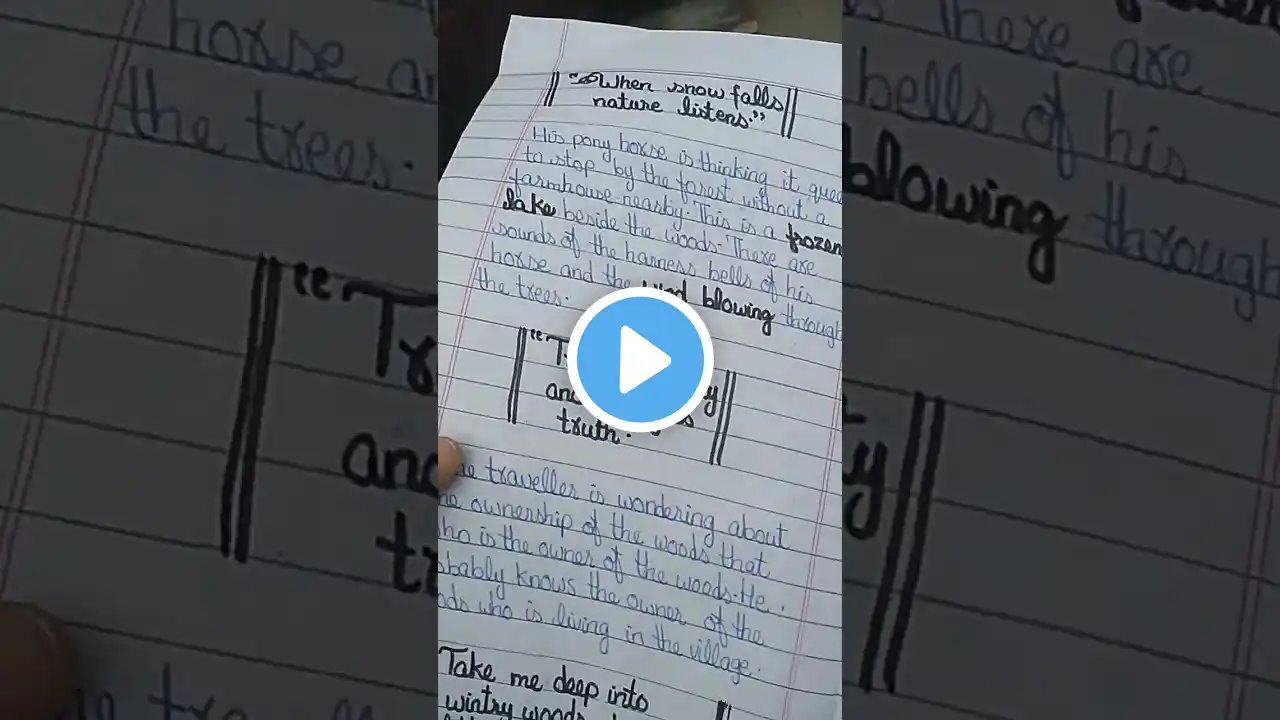 "When snow falls
nature listens."
His pony horse is thinking it quee
to stop by the forest without a
farmhouse nearby. This is a frozen
lake beside the woods. There are
sounds of the harness bells of his
horse and the blowing through
the trees.
and
truth.
traveller is wondering about
ownership of the woods that
who is the owner of the woods. He
obably knows the owner of the
ods who is living in the village.
Take me deep into
wintry woods